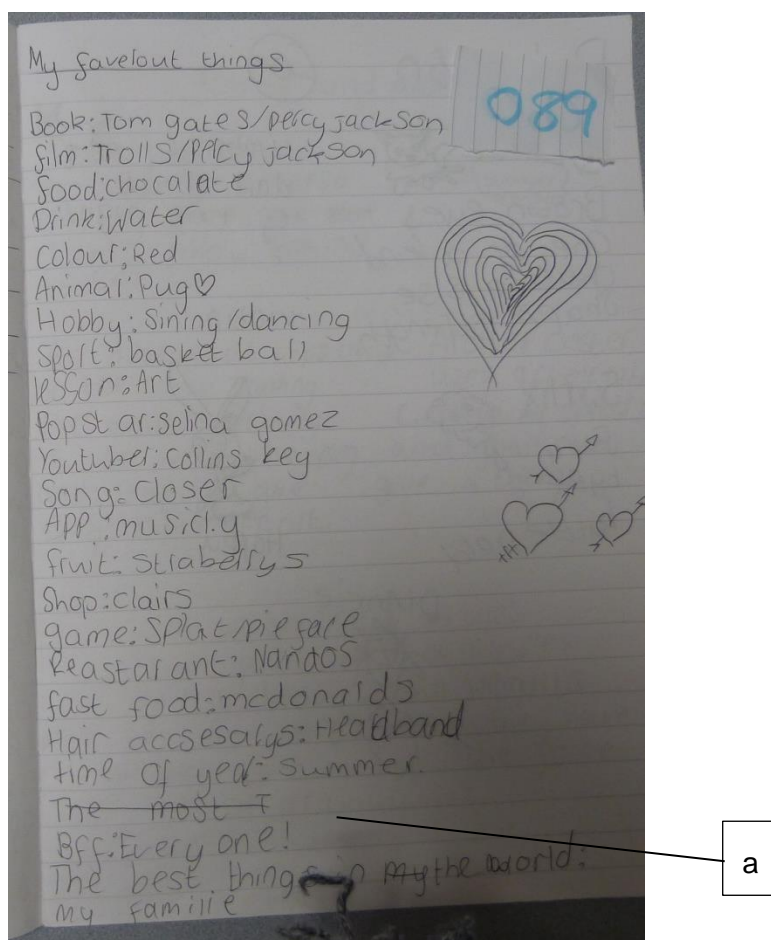 My favelout things
089
Book: Tom gates/percy jackson
film: Trolls/Percy jackson
food: chocalate
Drink: Water
Colour: Red
Animal: Pug♡
Hobby: Sining/dancing
Sport: basket ball
lesson: Art
Popstar: selina gomez
Youtuber: Collins key
Song: Closer
App: musicl.y
fruit: Straberrys
Shop: clairs
game: Splat/pie face
Reastarant: Nandos
fast food: mcdonalds
Hair accsesarys: Headband
time of year: Summer.
The most T
Bff: Every one!
The best things in my the world:
my familie
a